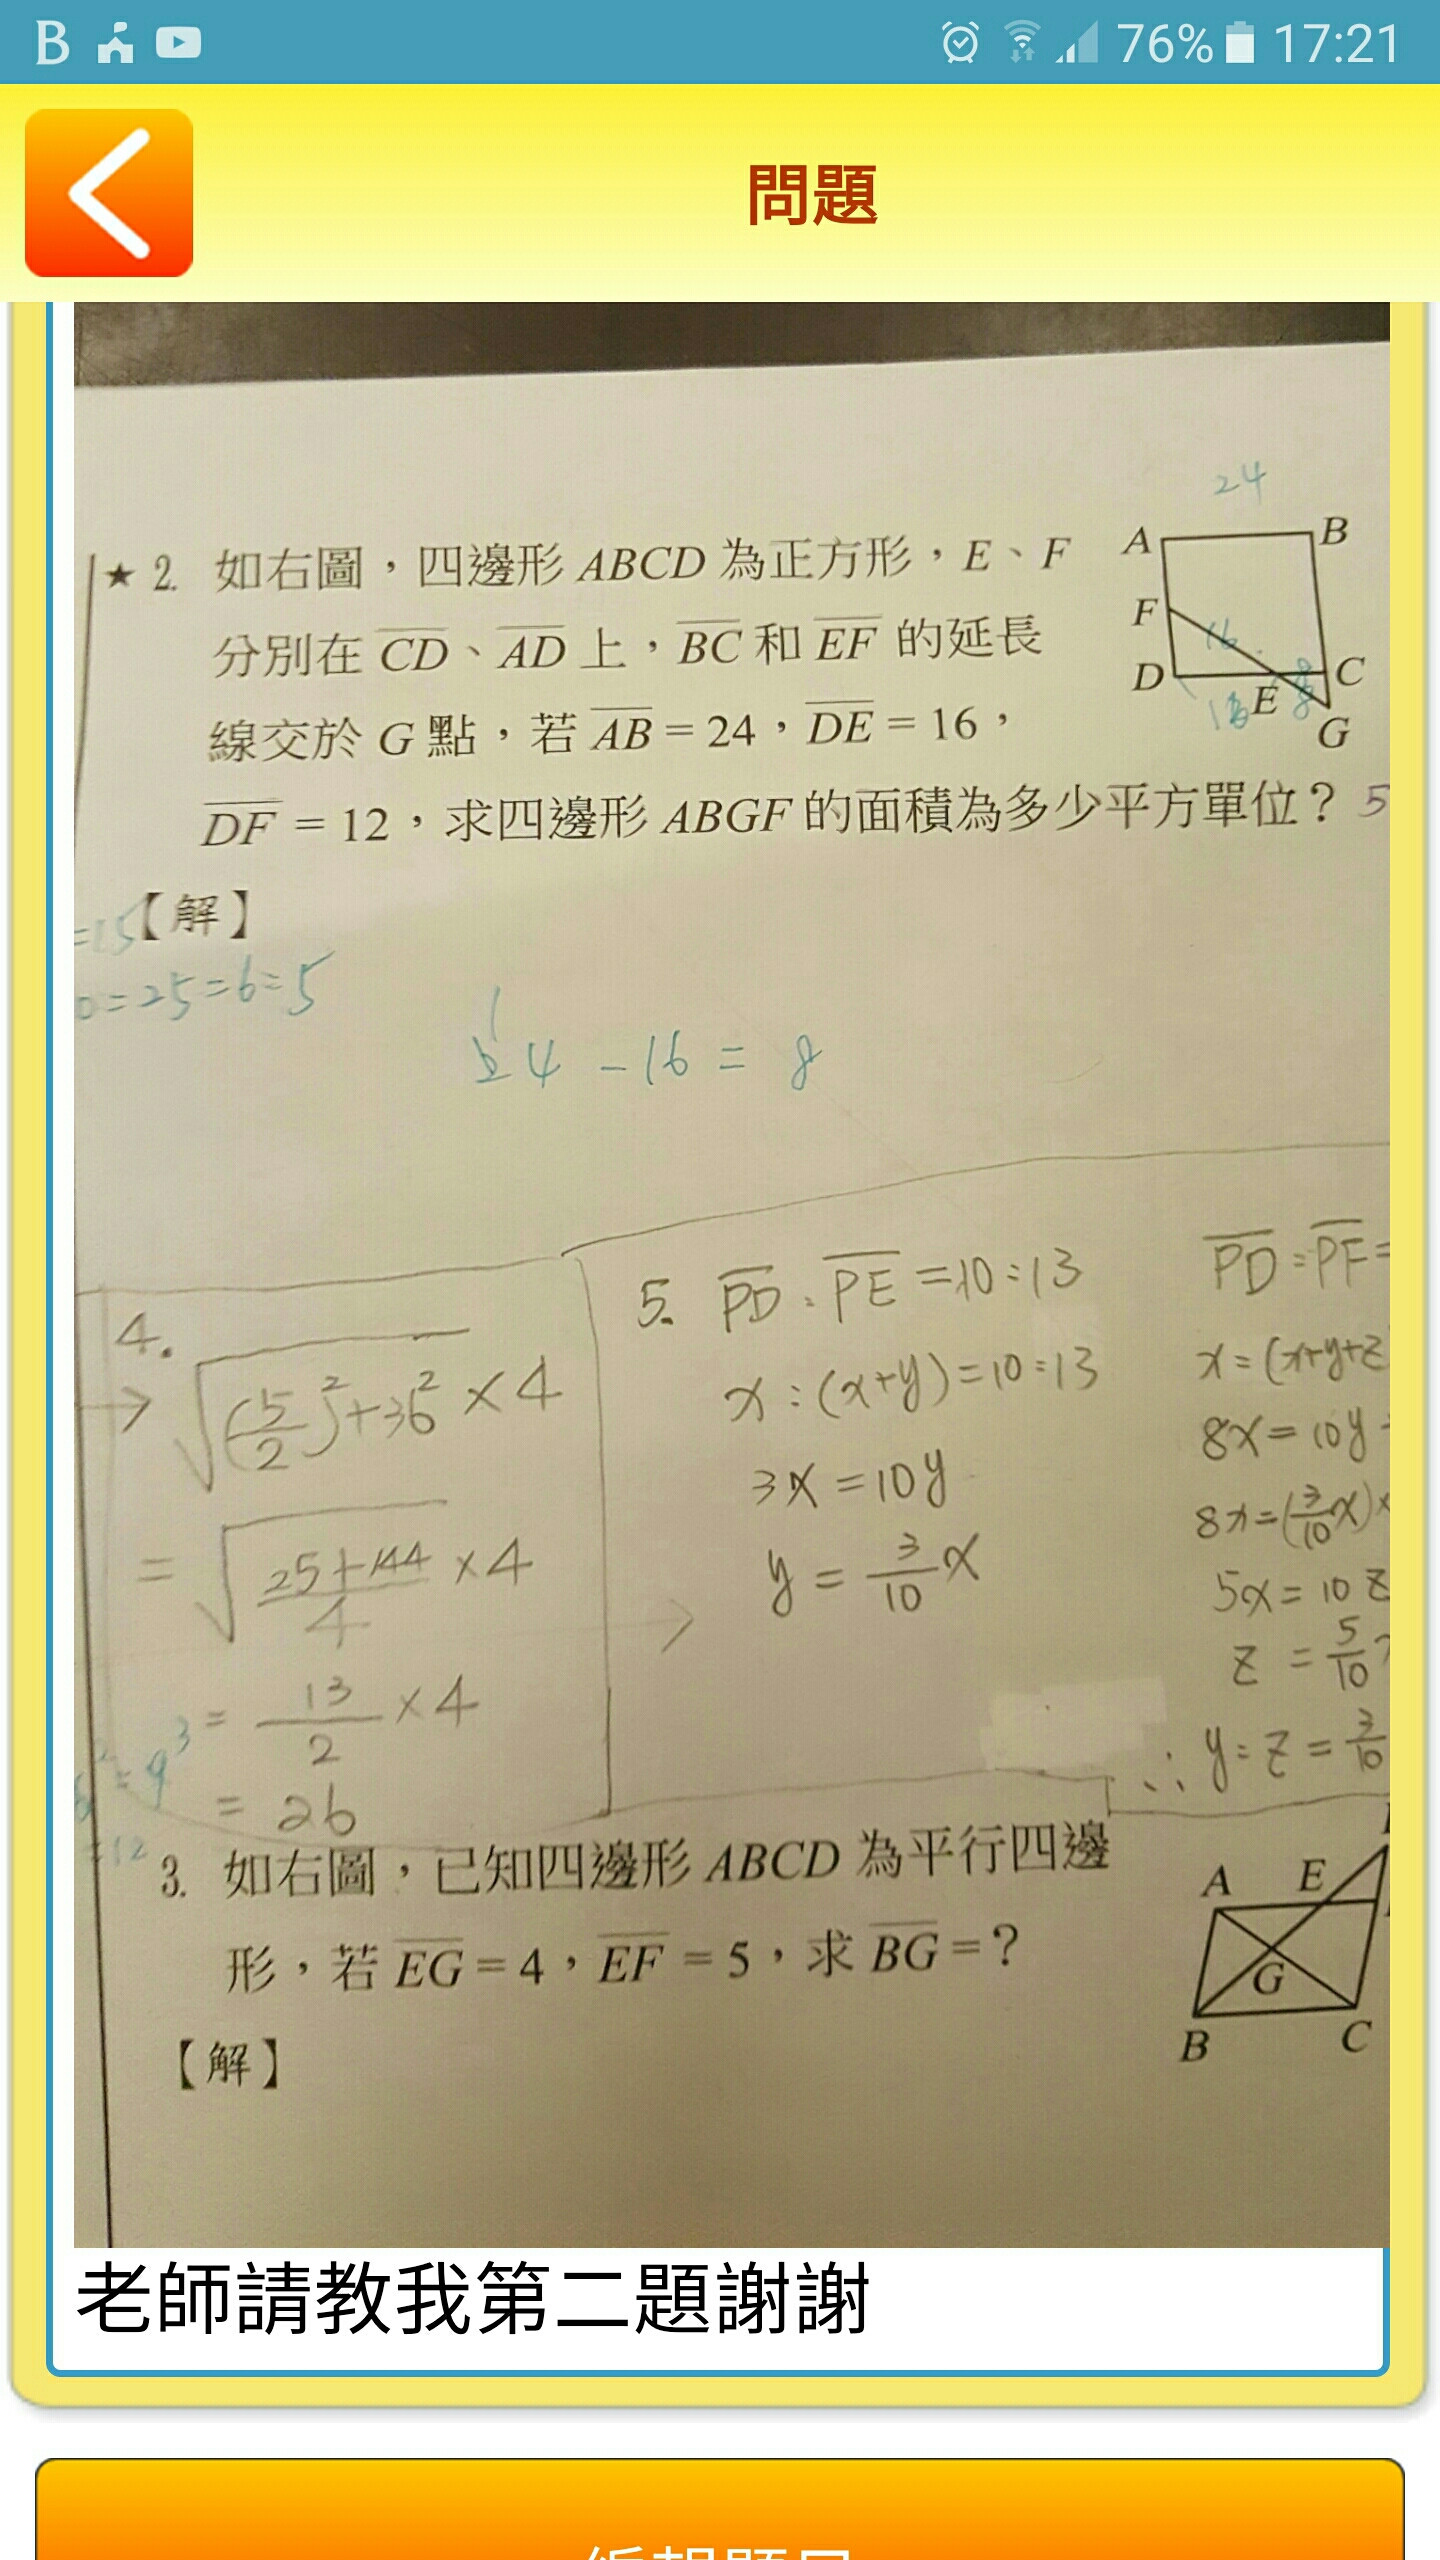 B
76% 17:21
問題
24
A
B
★ 2. 如右圖，四邊形 ABCD 為正方形，E、F
F
16
分別在 CD、AD 上，BC 和 EF 的延長
D
8
C
E
G
線交於 G 點，若 AB = 24，DE = 16，
DF = 12，求四邊形 ABGF 的面積為多少平方單位？5
=15
【解】
0=25=6=5
24 - 16 = 8
4.
→ √(5/2)²+36² ×4
= √25+144/4 ×4
= 13/2 ×4
= 26
5. PD : PE = 10:13
x : (x+y) = 10:13
3x = 10y
y = 3/10 x
PD : PF =
x = (x+y+z
8x = 10y
8x = (3/10 x)×
5x = 10z
z = 5/10
∴ y : z = 3/10
=12
3. 如右圖，已知四邊形 ABCD 為平行四邊
形，若 EG = 4，EF = 5，求 BG = ？
A
E
G
B
C
【解】
老師請教我第二題謝謝